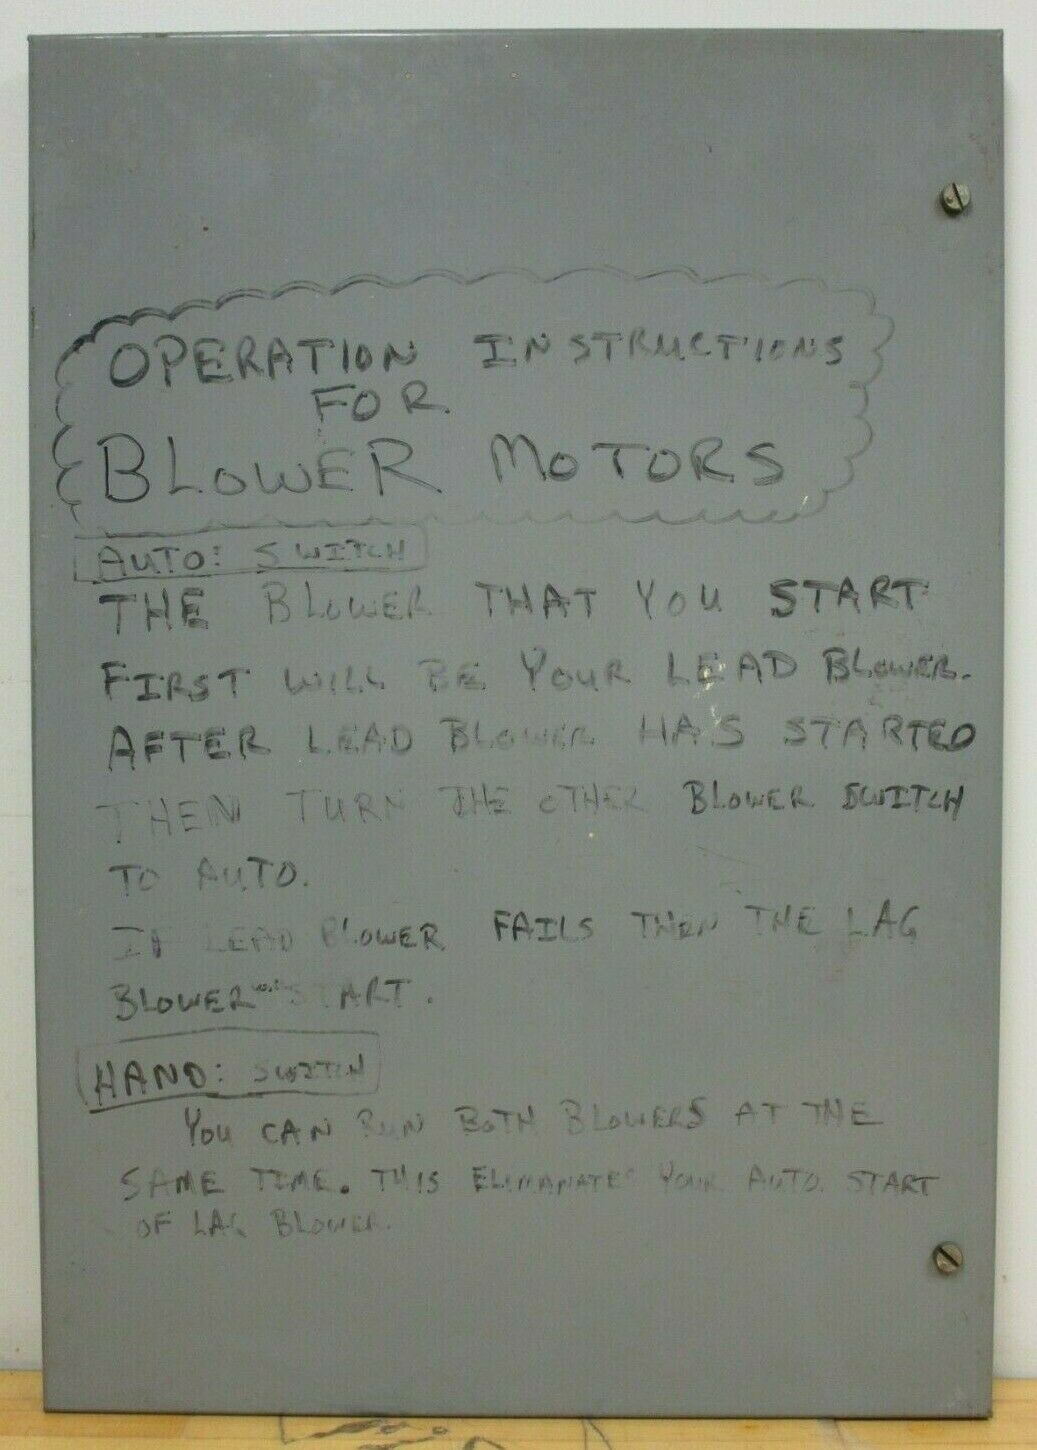 OPERATION INSTRUCTIONS
FOR
BLOWER MOTORS
AUTO: SWITCH
THE BLOWER THAT YOU START
FIRST WILL BE YOUR LEAD BLOWER.
AFTER LEAD BLOWER HAS STARTED
THEN TURN THE OTHER BLOWER SWITCH
TO AUTO.
IF LEAD BLOWER FAILS THEN THE LAG
BLOWER WILL START.
HAND: SWITCH
YOU CAN RUN BOTH BLOWERS AT THE
SAME TIME. THIS ELIMANATES YOUR AUTO START
OF LAG BLOWER.